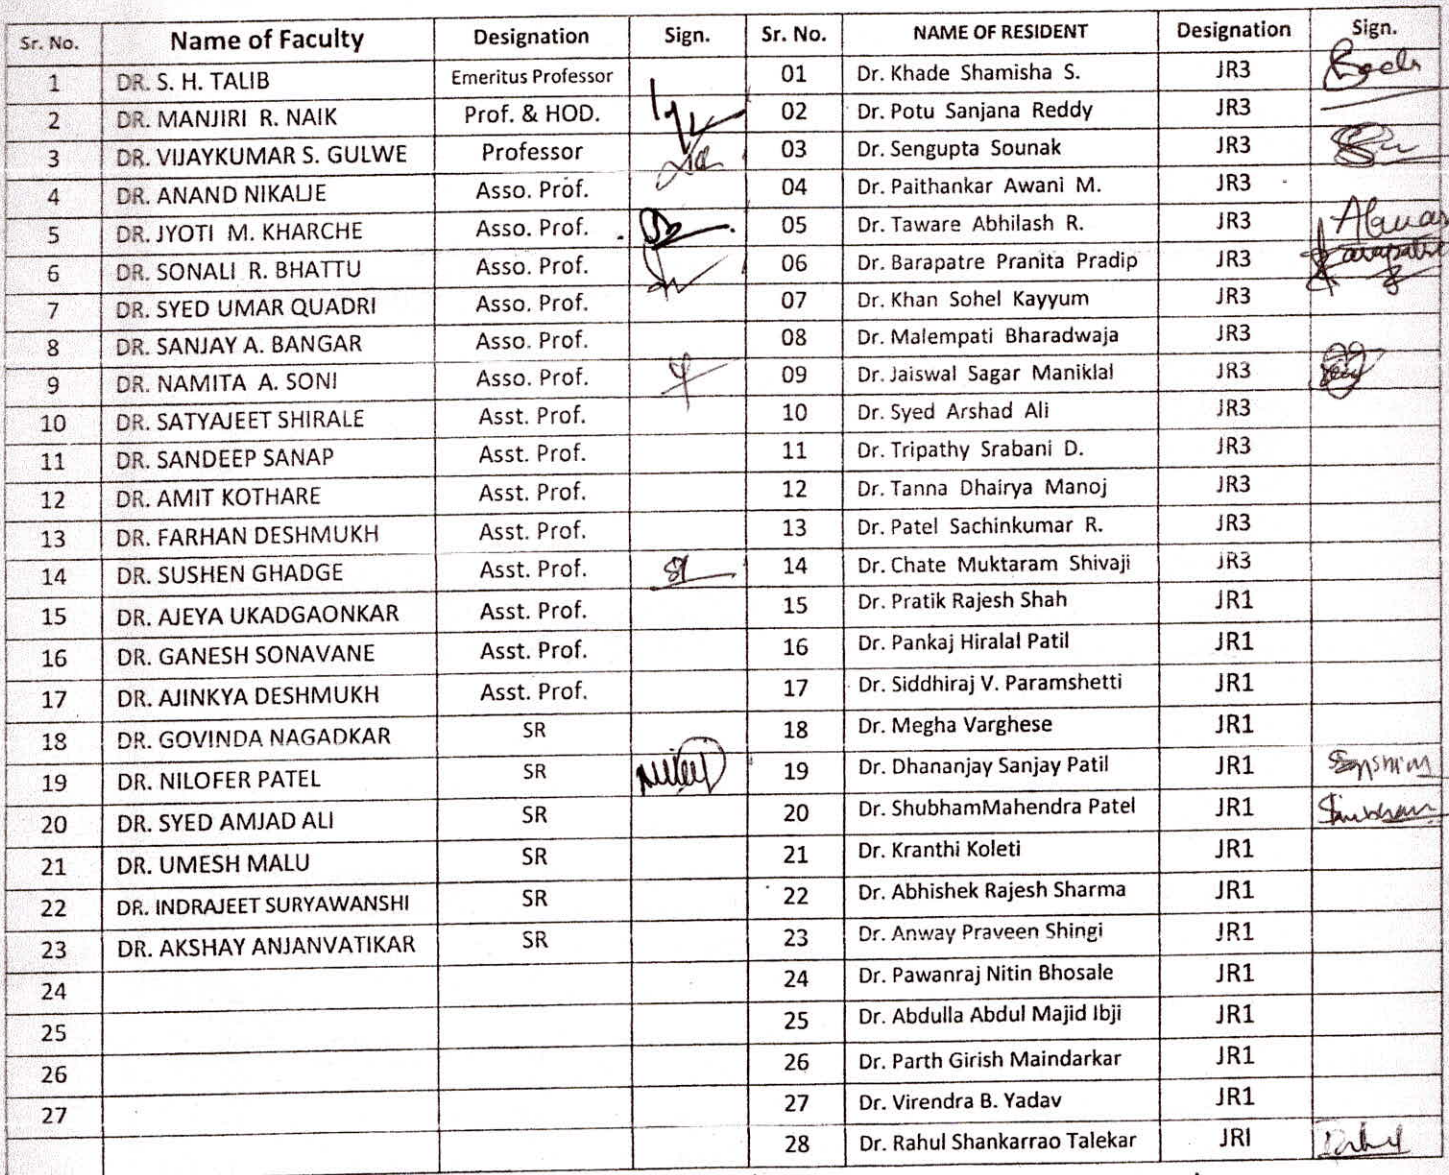 Sr. No. Name of Faculty Designation Sign. Sr. No. NAME OF RESIDENT Designation Sign.
1 DR. S. H. TALIB Emeritus Professor 01 Dr. Khade Shamisha S. JR3
2 DR. MANJIRI R. NAIK Prof. & HOD. 02 Dr. Potu Sanjana Reddy JR3
3 DR. VIJAYKUMAR S. GULWE Professor 03 Dr. Sengupta Sounak JR3
4 DR. ANAND NIKALJE Asso. Prof. 04 Dr. Paithankar Awani M. JR3
5 DR. JYOTI M. KHARCHE Asso. Prof. 05 Dr. Taware Abhilash R. JR3
6 DR. SONALI R. BHATTU Asso. Prof. 06 Dr. Barapatre Pranita Pradip JR3
7 DR. SYED UMAR QUADRI Asso. Prof. 07 Dr. Khan Sohel Kayyum JR3
8 DR. SANJAY A. BANGAR Asso. Prof. 08 Dr. Malempati Bharadwaja JR3
9 DR. NAMITA A. SONI Asso. Prof. 09 Dr. Jaiswal Sagar Maniklal JR3
10 DR. SATYAJEET SHIRALE Asst. Prof. 10 Dr. Syed Arshad Ali JR3
11 DR. SANDEEP SANAP Asst. Prof. 11 Dr. Tripathy Srabani D. JR3
12 DR. AMIT KOTHARE Asst. Prof. 12 Dr. Tanna Dhairya Manoj JR3
13 DR. FARHAN DESHMUKH Asst. Prof. 13 Dr. Patel Sachinkumar R. JR3
14 DR. SUSHEN GHADGE Asst. Prof. 14 Dr. Chate Muktaram Shivaji JR3
15 DR. AJEYA UKADGAONKAR Asst. Prof. 15 Dr. Pratik Rajesh Shah JR1
16 DR. GANESH SONAVANE Asst. Prof. 16 Dr. Pankaj Hiralal Patil JR1
17 DR. AJINKYA DESHMUKH Asst. Prof. 17 Dr. Siddhiraj V. Paramshetti JR1
18 DR. GOVINDA NAGADKAR SR 18 Dr. Megha Varghese JR1
19 DR. NILOFER PATEL SR 19 Dr. Dhananjay Sanjay Patil JR1
20 DR. SYED AMJAD ALI SR 20 Dr. ShubhamMahendra Patel JR1
21 DR. UMESH MALU SR 21 Dr. Kranthi Koleti JR1
22 DR. INDRAJEET SURYAWANSHI SR 22 Dr. Abhishek Rajesh Sharma JR1
23 DR. AKSHAY ANJANVATIKAR SR 23 Dr. Anway Praveen Shingi JR1
24 24 Dr. Pawanraj Nitin Bhosale JR1
25 25 Dr. Abdulla Abdul Majid Ibji JR1
26 26 Dr. Parth Girish Maindarkar JR1
27 27 Dr. Virendra B. Yadav JR1
28 Dr. Rahul Shankarrao Talekar JRI